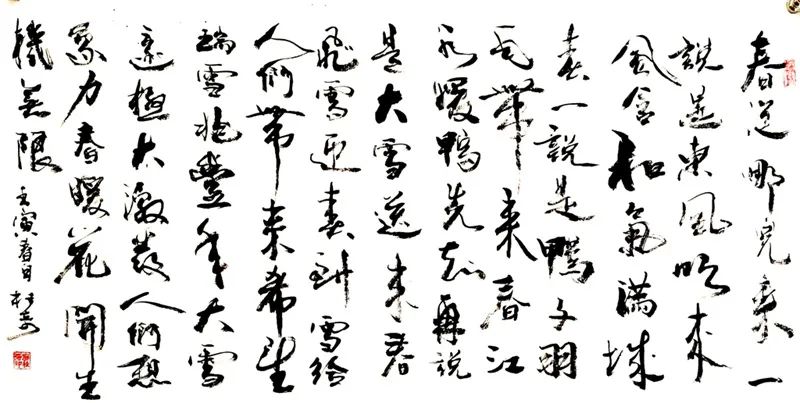 春從哪兒來一
說是東風吹來
風含和氣滿城
春一說是鴨子羽
毛帶來春江
水暖鴨先知再說
是大雪送來春
飛雪迎春到雪給
人們帶來希望
瑞雪兆豐年大雪
意極大激發人們想
象力春暖花開生
機無限
壬寅春日